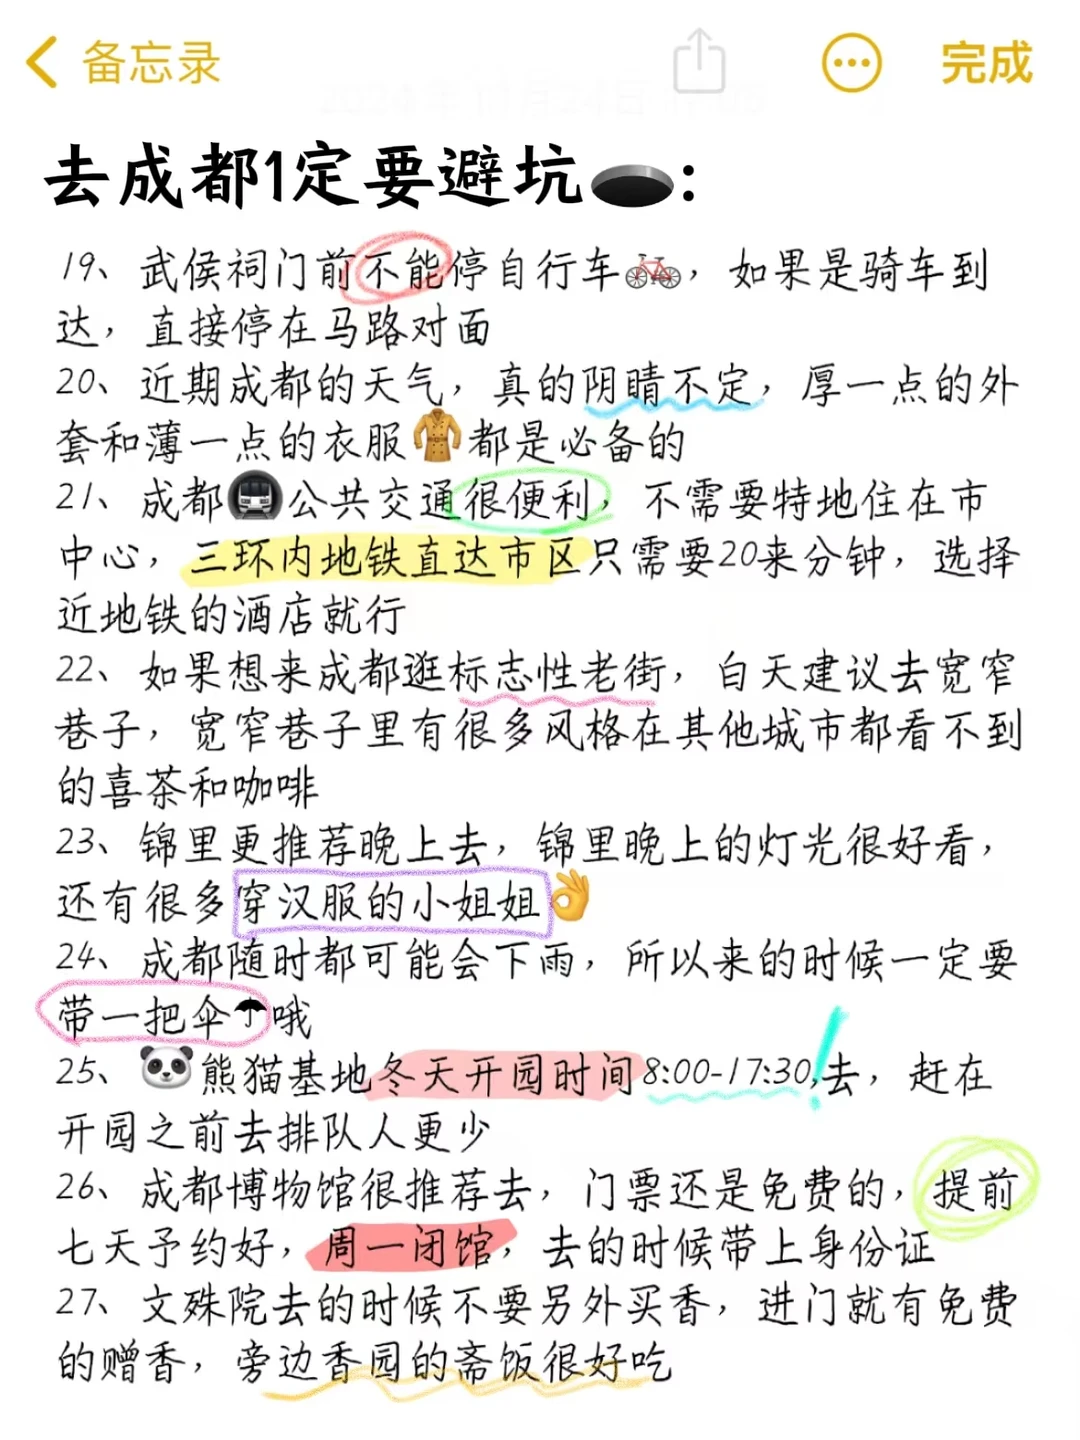 备忘录
完成
去成都1定要避坑🕳️:
19、武侯祠门前不能停自行车🚲，如果是骑车到
达，直接停在马路对面
20、近期成都的天气，真的阴晴不定，厚一点的外
套和薄一点的衣服🧥都是必备的
21、成都🚇公共交通很便利，不需要特地住在市
中心，三环内地铁直达市区只需要20来分钟，选择
近地铁的酒店就行
22、如果想来成都逛标志性老街，白天建议去宽窄
巷子，宽窄巷子里有很多风格在其他城市都看不到
的喜茶和咖啡
23、锦里更推荐晚上去，锦里晚上的灯光很好看，
还有很多穿汉服的小姐姐👌
24、成都随时都可能会下雨，所以来的时候一定要
带一把伞☂哦
25、🐼熊猫基地冬天开园时间8:00-17:30,去，赶在
开园之前去排队人更少
26、成都博物馆很推荐去，门票还是免费的，提前
七天予约好，周一闭馆，去的时候带上身份证
27、文殊院去的时候不要另外买香，进门就有免费
的赠香，旁边香园的斋饭很好吃